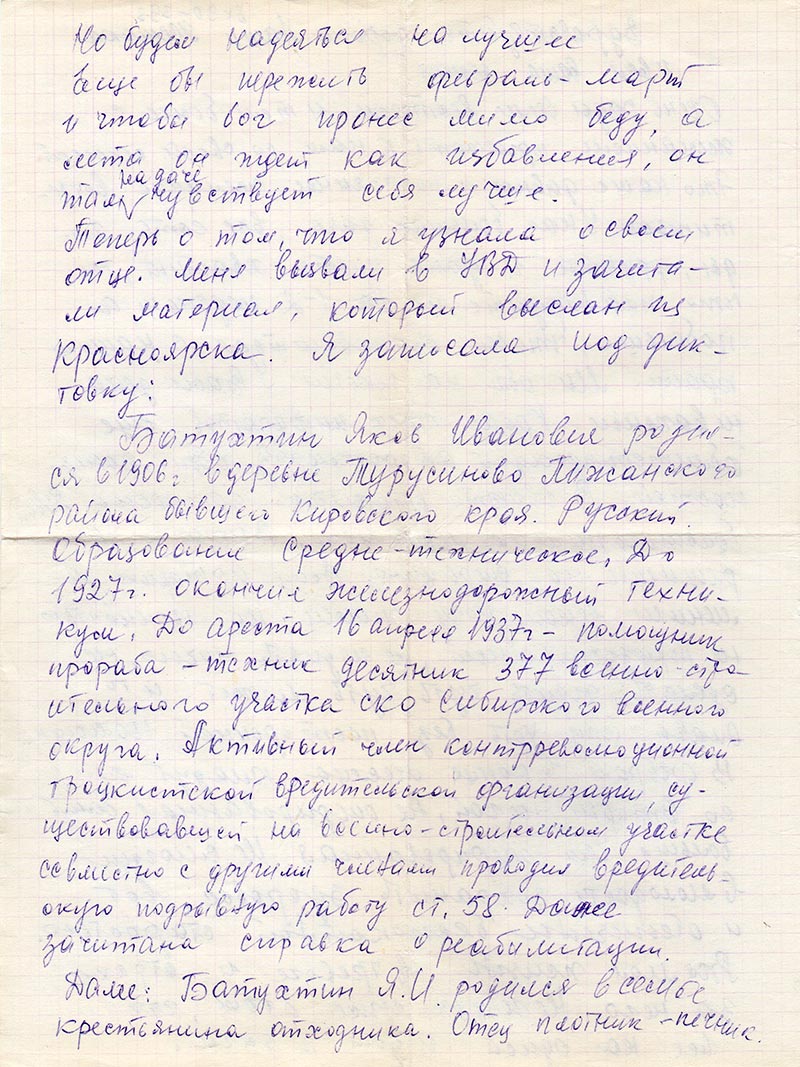 Но будем надеяться на лучшее
Еще бы пережить февраль-март
и чтобы бог пронес мимо беду, а
лета он ждет как избавления, он
на даче
там чувствует себя лучше.
Теперь о том, что я узнала о своем
отце. Меня вызвали в УВД и зачита-
ли материал, который выслан из
Красноярска. Я записала под дик-
товку:
Батухтин Яков Иванович родил-
ся в 1906 г в деревне Турусиново Пижанского
района бывшего Кировского края. Русский.
Образование средне-техническое. До
1927г. окончил железнодорожный техни-
кум. До ареста 16 апреля 1937г - помощник
прораба - техник десятник 377 военно-стро-
ительного участка СКО Сибирского военного
округа. Активный член контрреволюционной
троцкистской вредительской организации, су-
ществовавшей на военно-строительном участке
совместно с другими членами проводил вредитель-
скую подрывную работу ст. 58. Далее
зачитана справка о реабилитации.
Далее: Батухтин Я.И. родился в семье
крестьянина отходника. Отец плотник-печник.